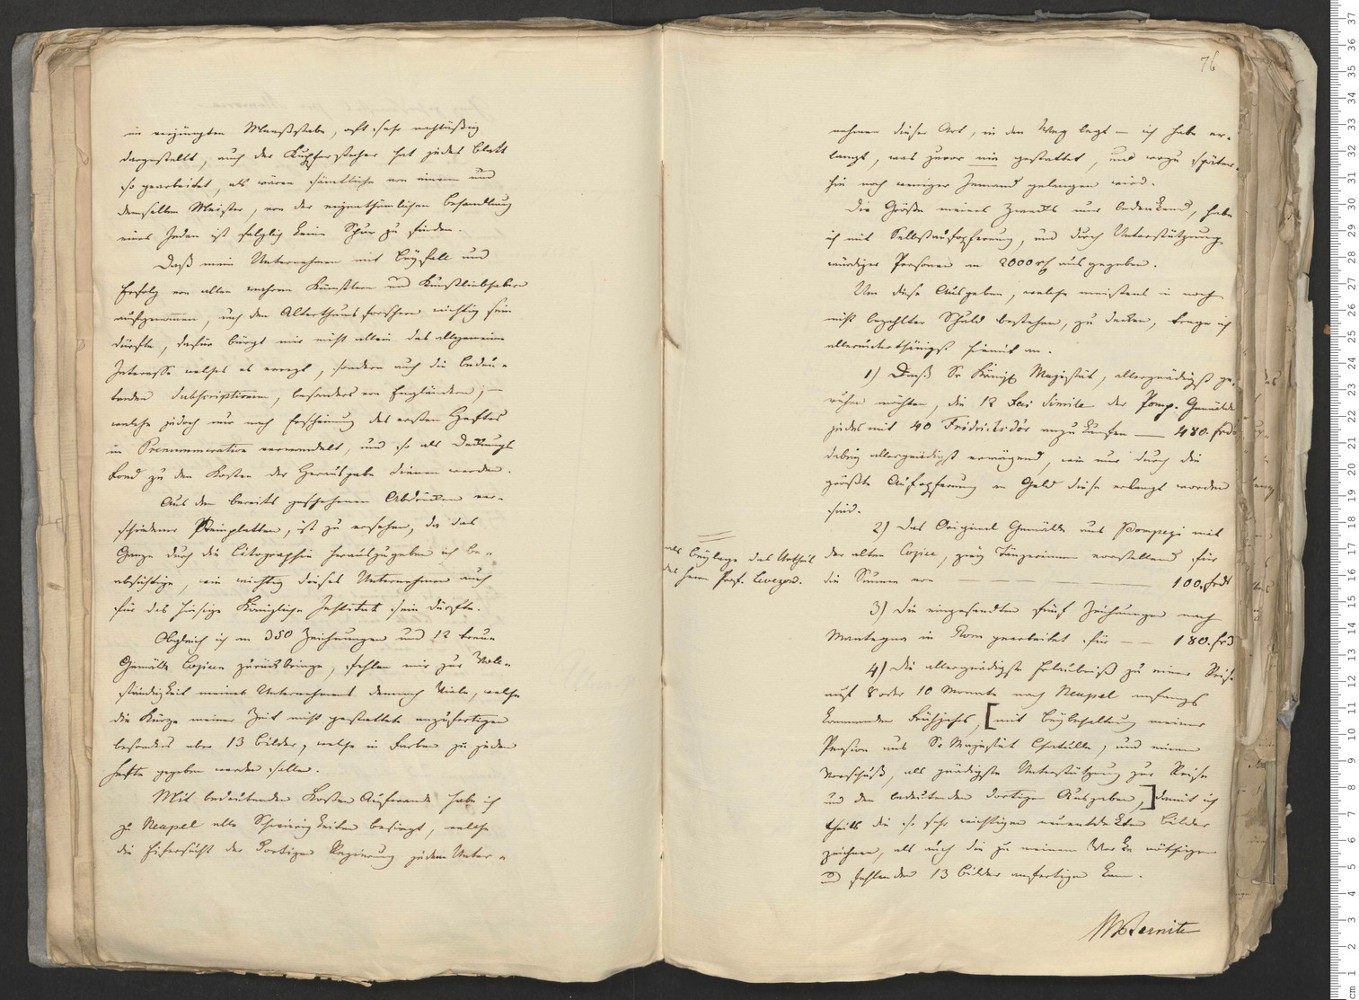 im verjüngten Maasstabe, oft sehr nachläßig
dargestellt, auch der Kupferstecher hat jedes Blatt
so gearbeitet, als wären sämtliche von einem und
demselben Meister, von der eigenthümlichen Behandlung
eines Jeden ist folglich keine Spur zu finden.
Daß mein Unternehmen mit Beyfall und
Erfolg von allen wahren Künstlern und Kunstliebhabern
aufgenommen, und den Alterthumsforschern wichtig sein
dürfte, dafür bürgt mir nicht allein das allgemeine
Interesse welches es erregt, sondern auch die bedeu-
tenden Subscriptionen, besonders von Engländern; –
welche jedoch nur nach Erscheinung des ersten Heftes
in Prennumeration verwandelt, und so als Deckungs
Fond zu den Kosten der Herausgabe dienen werden.
Aus den bereits geschehenen Abdrücken ver-
schiedener Steinplatten, ist zu ersehen, da das
Ganze durch die Litographie herauszugeben ich be-
absichtige, wie wichtig dieses Unternehmen auch
für das hiesige Königliche Institut sein dürfte.
Obgleich ich an 350 Zeichnungen und 12 treue
Gemälde Copien zurückbringe, fehlen mir zur Vole-
ständigkeit meines Unternehmens dennoch Viele, welche
die Kürze meiner Zeit nicht gestattete anzufertigen
besonders aber 13 Bilder, welche in Farben zu jedem
Hefte gegeben werden sollen.
Mit bedeutenden Kosten Aufwande habe ich
zu Neapel alle Schwierigkeiten besiegt, welche
die Eifersucht der dortigen Regierung jedem Unter-
76
nehmen dieser Art, in den Weg legt – ich habe er-
langt, was zuvor nie gestattet, und wozu später-
hin noch weniger Jemand gelangen wird.
Die Größe meines Zwecks nur bedenkend, habe
ich mit Selbstaufopferung, und durch Unterstützung
würdiger Personen an 2000 rh ausgegeben.
Um diese Ausgaben, welche meistens in noch
nicht bezahlter Schuld bestehen, zu decken, trage ich
allerunterthänigst hiemit an.
1) Daß Sr Königl Majestät, allergnädigst ge-
ruhen möchten, die 12 Facsimile der Pomp. Gemälde
jedes mit 40 Fridrichsdor anzukaufen — 480. frdr
dabey allergnädigst erwägend, wie nur durch die
größte Aufopferung an Geld diese erlangt worden
sind.
2) Das Original Gemälde aus Pompeji mit
der alten Copie, zwey Tänzerinnen vorstellend, für
die Summe von — 100. frdr
als Beylage das Urtheil
des Herrn Prof. Levezow.
3) Die eingesandten fünf Zeichnungen nach
Mantegna in Rom gearbeitet für — 180. frd
4) Die allergnädigste Erlaubniß zu einer Reise
auf 8 oder 10 Monate nach Neapel anfangs
kommenden Frühjahrs, [mit Beybehaltung meiner
Pension aus Sr Majestät Chatulle, und einem
Vorschuß, als gnädigste Unterstützung zur Reise
und den bedeutenden dortigen Ausgaben,] damit ich
theils die so sehr wichtigen neuentdeckten Bilder
zeichnen, als auch die zu meinem Werke nöthigen
und fehlenden 13 Bilder anfertigen kann.
W Ternite